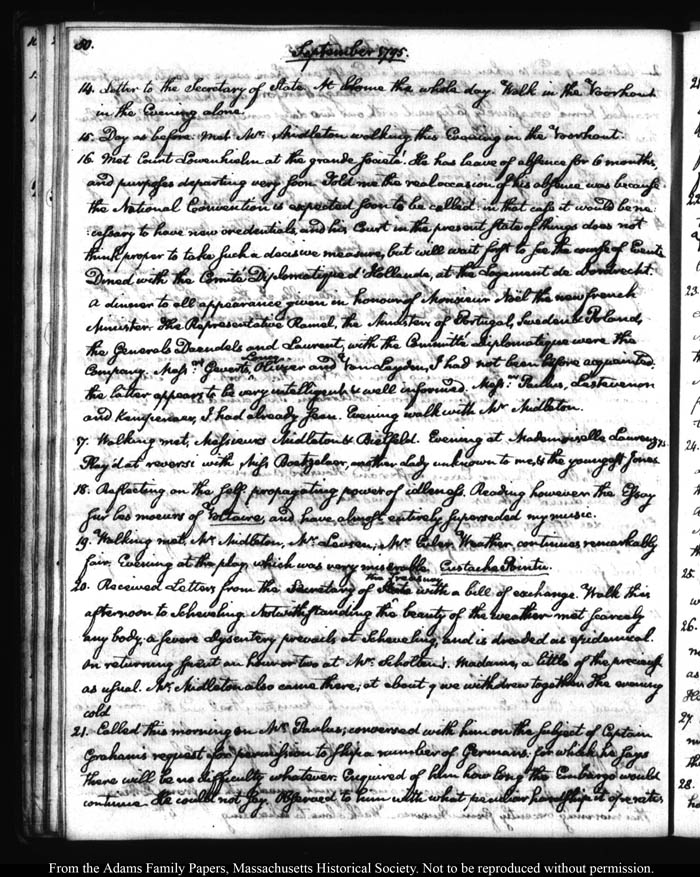 50.
September 1795.
14. Letter to the Secretary of State. At home the whole day. Walk in the Voorhout
in the Evening alone.
15. Day as before. Met Mr. Midleton walking this Evening in the Voorhout.
16. Met Count Lowenhielm at the grande Société. He has leave of absence for 6 months,
and purposes departing very soon. Told me the real occasion of his absence was because
the National Convention is expected soon to be called: in that case it would be ne-
:cessary to have new credentials, and his Court in the present state of things does not
think proper to take such a decisive measure, but will wait first to see the course of Events
Dined with the Comité Diplomatique d'Hollande, at the Logement de Dordrecht.
A dinner to all appearance given in honour of Monsieur Noël the new french
Minister. The Representative Ramel, the Ministers of Portugal, Sweden & Poland,
the Generals Daendels and Laurent, with the Committee Diplomatique were the
Company. Messrs. Gevers, and Van Leyden, I had not been before acquainted.
the latter appears to be very intelligent & well informed. Messrs. Paulus, Lestevenon
and I had already seen. Evening walk with Mr. Midleton.
17. Walking met, Messieurs Midleton & Bielfeld. Evening at Mademoiselle
Play'd at reversi with Miss Boetzelaer, another lady unknown to me, & the youngest Jones
18. Reflecting on the self propagating power of idleness. Reading however the Essay
sur les moeurs of Voltaire, and have almost entirely superseded my music.
19. Walking met, Mr. Midleton, Mr. Mr. Weather continues remarkably
fair. Evening at the play, which was very miserable. Eustache Pointu.
the Treasury
20. Received Letters from the Secretary of State with a bill of exchange. Walk this
afternoon to Scheveling. Notwithstanding the beauty of the weather met scarcely
any body: a severe dysentery prevails at Scheveling, and is dreaded as epidemical.
On returning spent an hour or two at Mr. Scholten's. Madame, a little of the precieuse
as usual. Mr. Midleton also came there; at about 9 we withdrew together. The evening
cold
21. Called this morning on Mr. Paulus; conversed with him on the subject of Captain
Graham's request for permission to ship a number of Germans, for which he says
there will be no difficulty whatever. Enquired of him how long the Embargo would
continue. He could not say. Observed to him with what peculiar hardship it operates
From the Adams Family Papers, Massachusetts Historical Society. Not to be reproduced without permission.